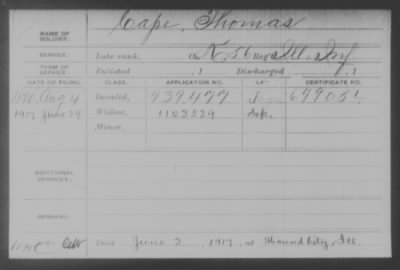 NAME OF SOLDIER: Cape, Thomas
SERVICE: Late rank, K 56 Reg't Ill. Inf
TERM OF SERVICE: Enlisted , 1 Discharged , 1
DATE OF FILING. CLASS. APPLICATION NO. CERTIFICATE NO.
Aug 4 Invalid, 939477
1917 June 29 Widow, 1103329
Minor,
ADDITIONAL SERVICES:
REMARKS:
Died June 3, 1917, at Mound City, Ill.